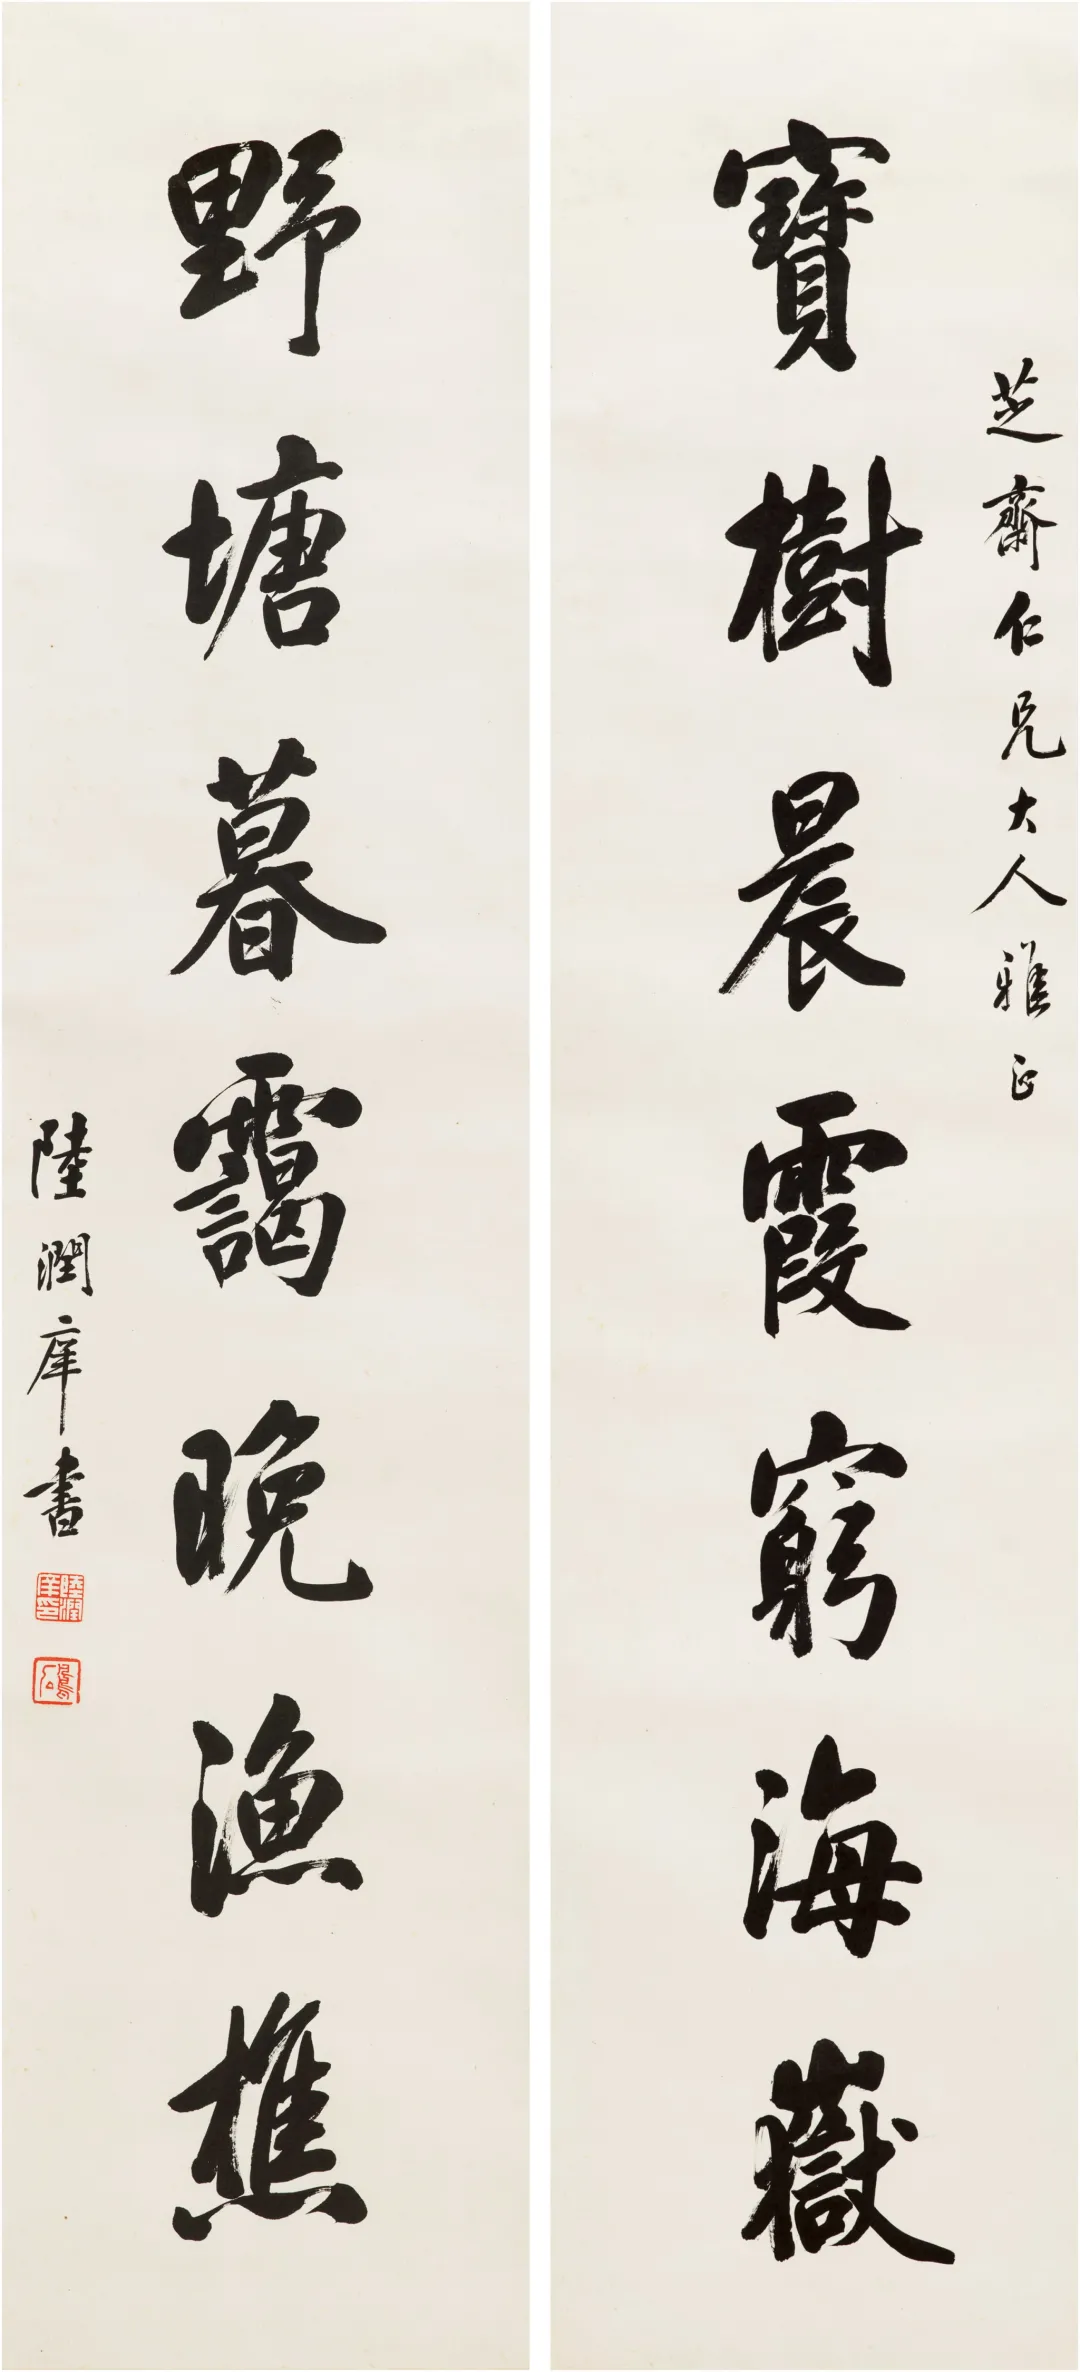 芝齋仁兄大人雅正
寶樹晨霞窮海嶽
野塘暮靄晚漁樵
陸潤庠書
陸潤庠印
鳳石